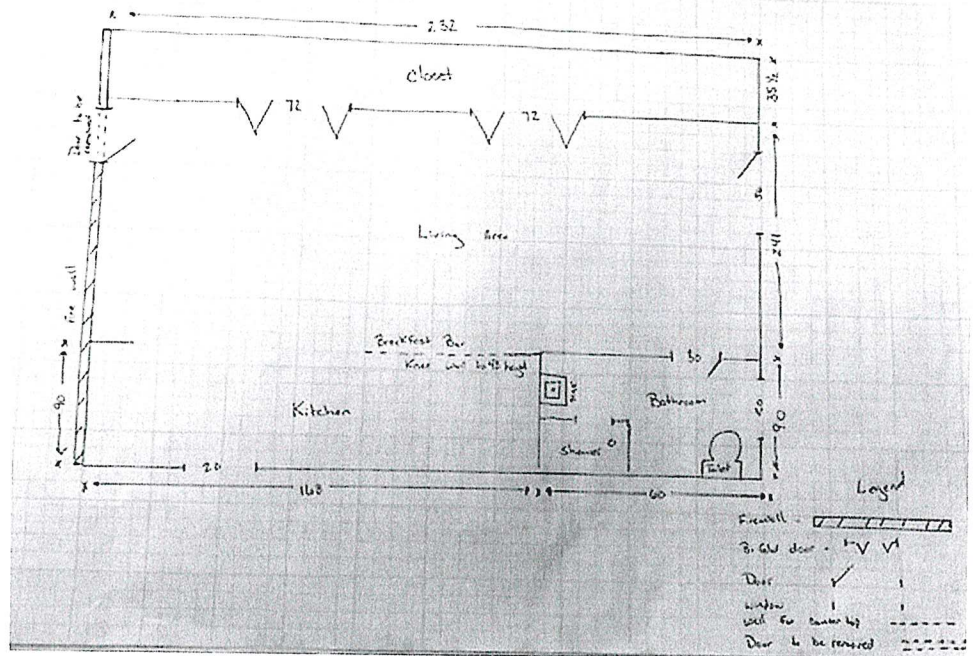 232
Closet
35 1/2
72
72
Door to be
removed
30
Living Area
241
Fire wall
Breakfast Bar
Knee wall to 42 height
30
90
Kitchen
Sink
Bathroom
Shower
Toilet
90
20
168
60
Legend
Firewall -
Bifold door -
Door
window
wall for counter top
Door to be removed